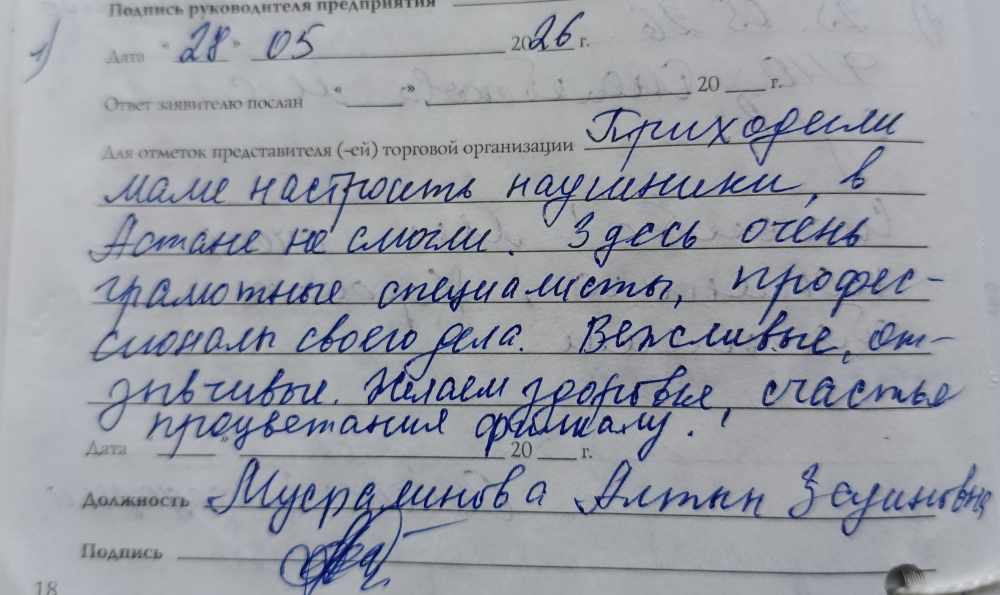 Подпись руководителя предприятия
1) Дата "28" 05 2026 г.
Ответ заявителю послан "___" ___ 20 ___ г.
Для отметок представителя (-ей) торговой организации Приходили
маме настроить наушники, в
Астане не смогли. Здесь очень
грамотные специалисты, профес-
сионалы своего дела. Вежливые, от-
зывчивые. Желаем здоровья, счастья,
процветания филиалу.
Дата ___ " ___ 20 ___ г.
Должность Мусралинова Алтын
Подпись
18